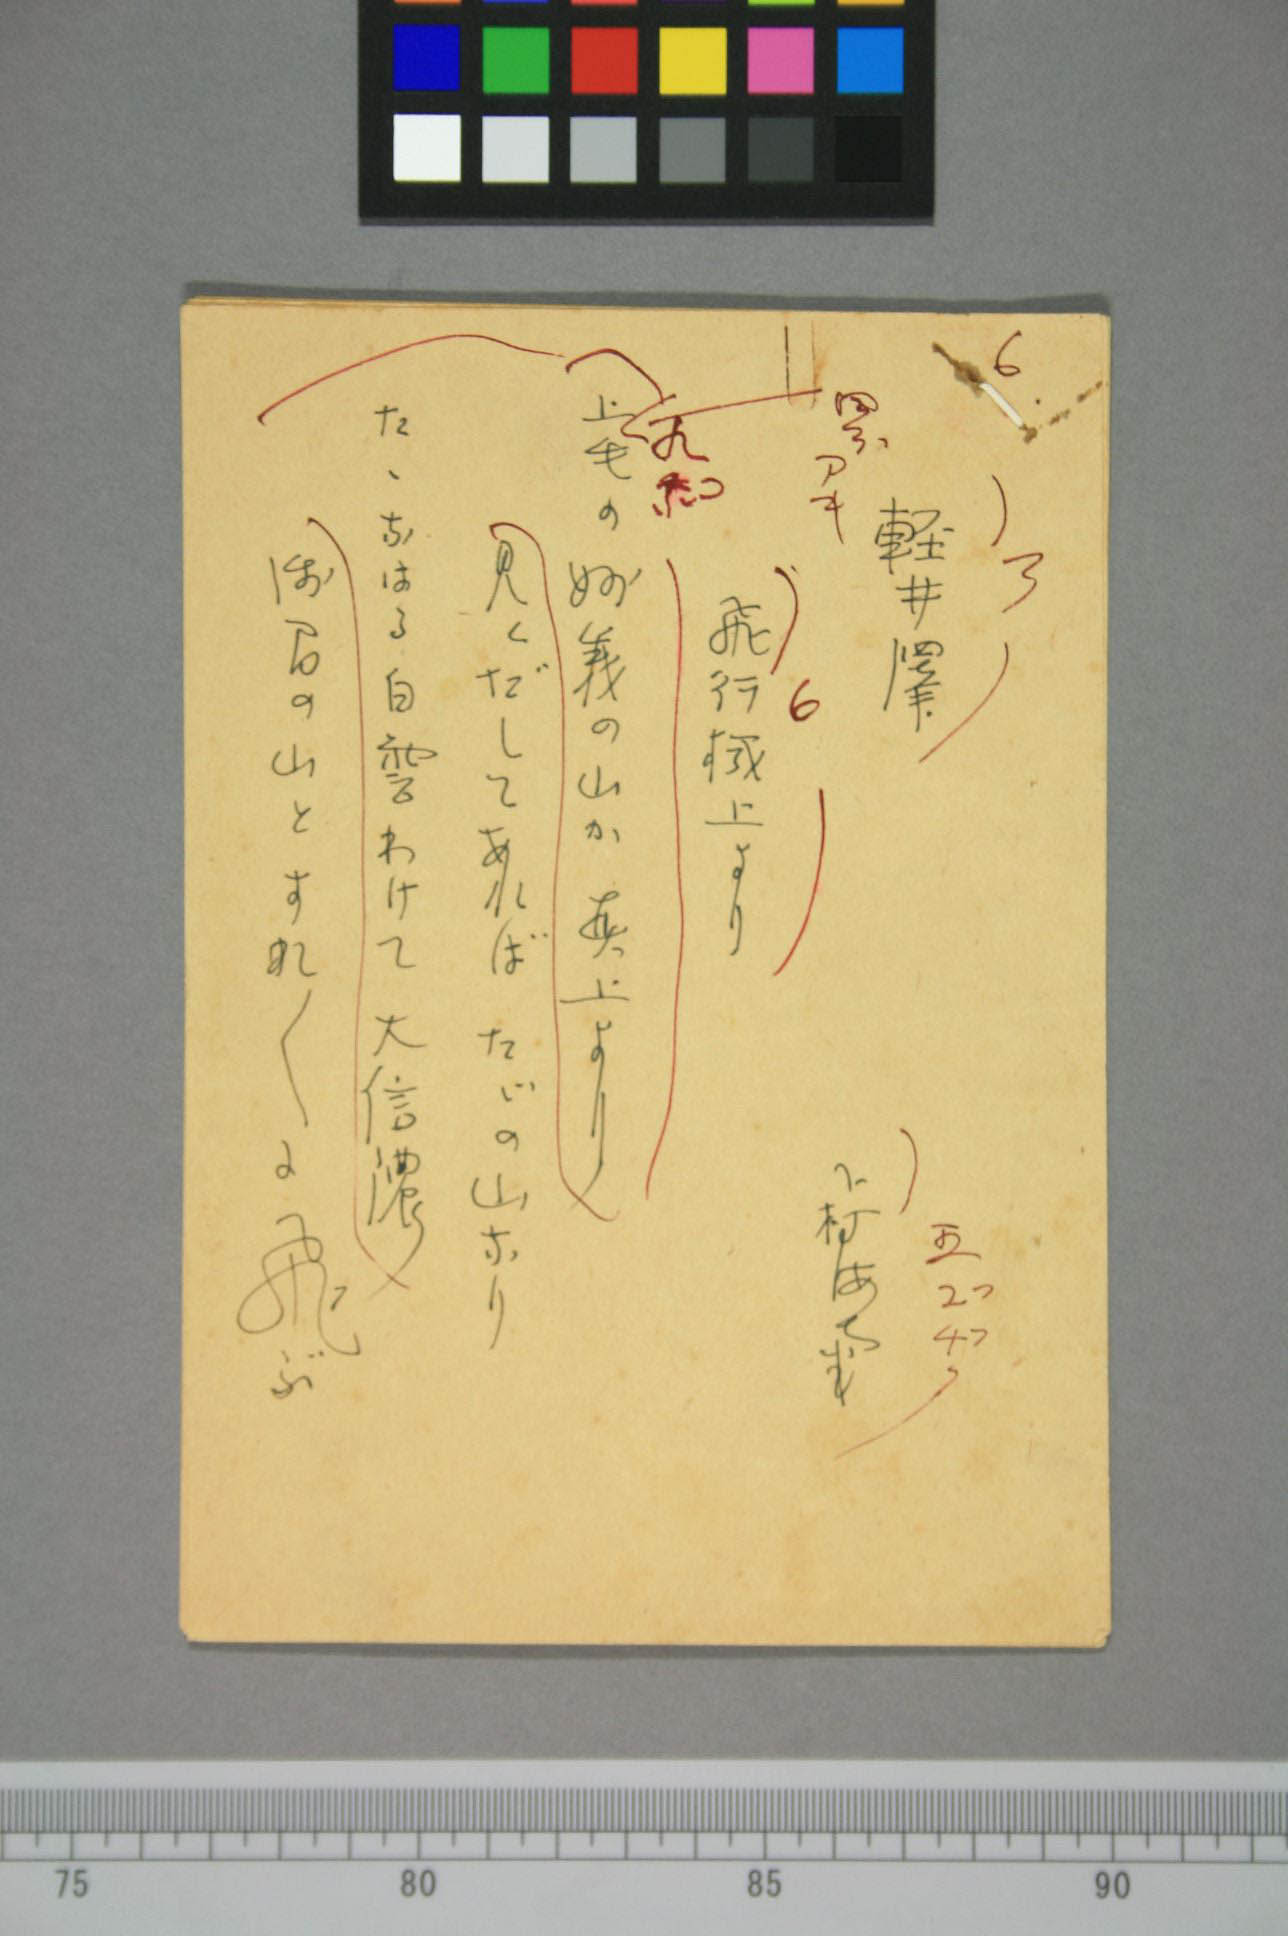 6.
軽井澤
アキ
下村海南
五
2つ
4つ
飛行機上より
6
上毛の妙義の山か 真上より
見くだしてあれば たゞの山なり
たゝなはる白雲わけて大信濃
浅間の山とすれ〱に飛ぶ
75 80 85 90